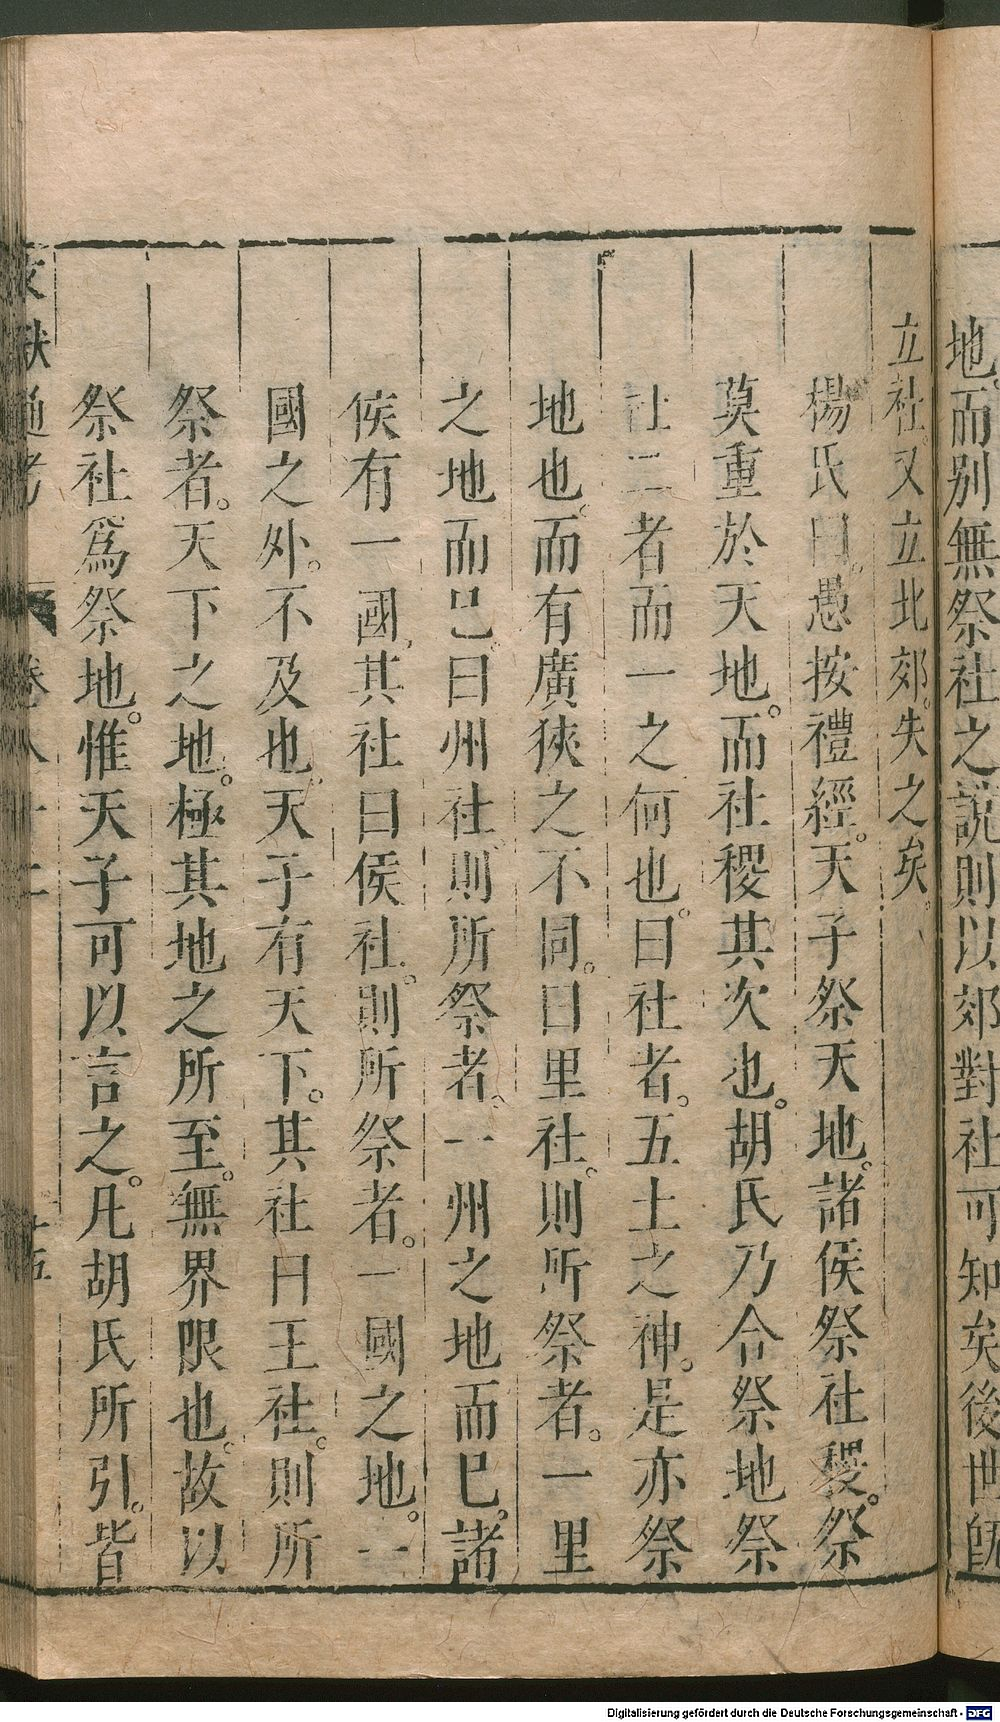 地而別無祭社之說則以郊對社可知矣後世旣
立社又立北郊。失之矣。
楊氏曰。愚按禮經。天子祭天地。諸侯祭社稷。祭
莫重於天地。而社稷其次也。胡氏乃合祭地祭
社二者而一之何也。曰社者。五土之神。是亦祭
地也。而有廣狹之不同。曰里社。則所祭者。一里
之地而已。曰州社則所祭者。一州之地而已。諸
侯有一國。其社曰侯社。則所祭者。一國之地。一
國之外。不及也。天子有天下。其社曰王社。則所
祭者。天下之地。極其地之所至。無界限也。故以
祭社爲祭地。惟天子可以言之。凡胡氏所引。皆
文獻通考 卷八十二 十五
Digitalisierung gefördert durch die Deutsche Forschungsgemeinschaft - DFG